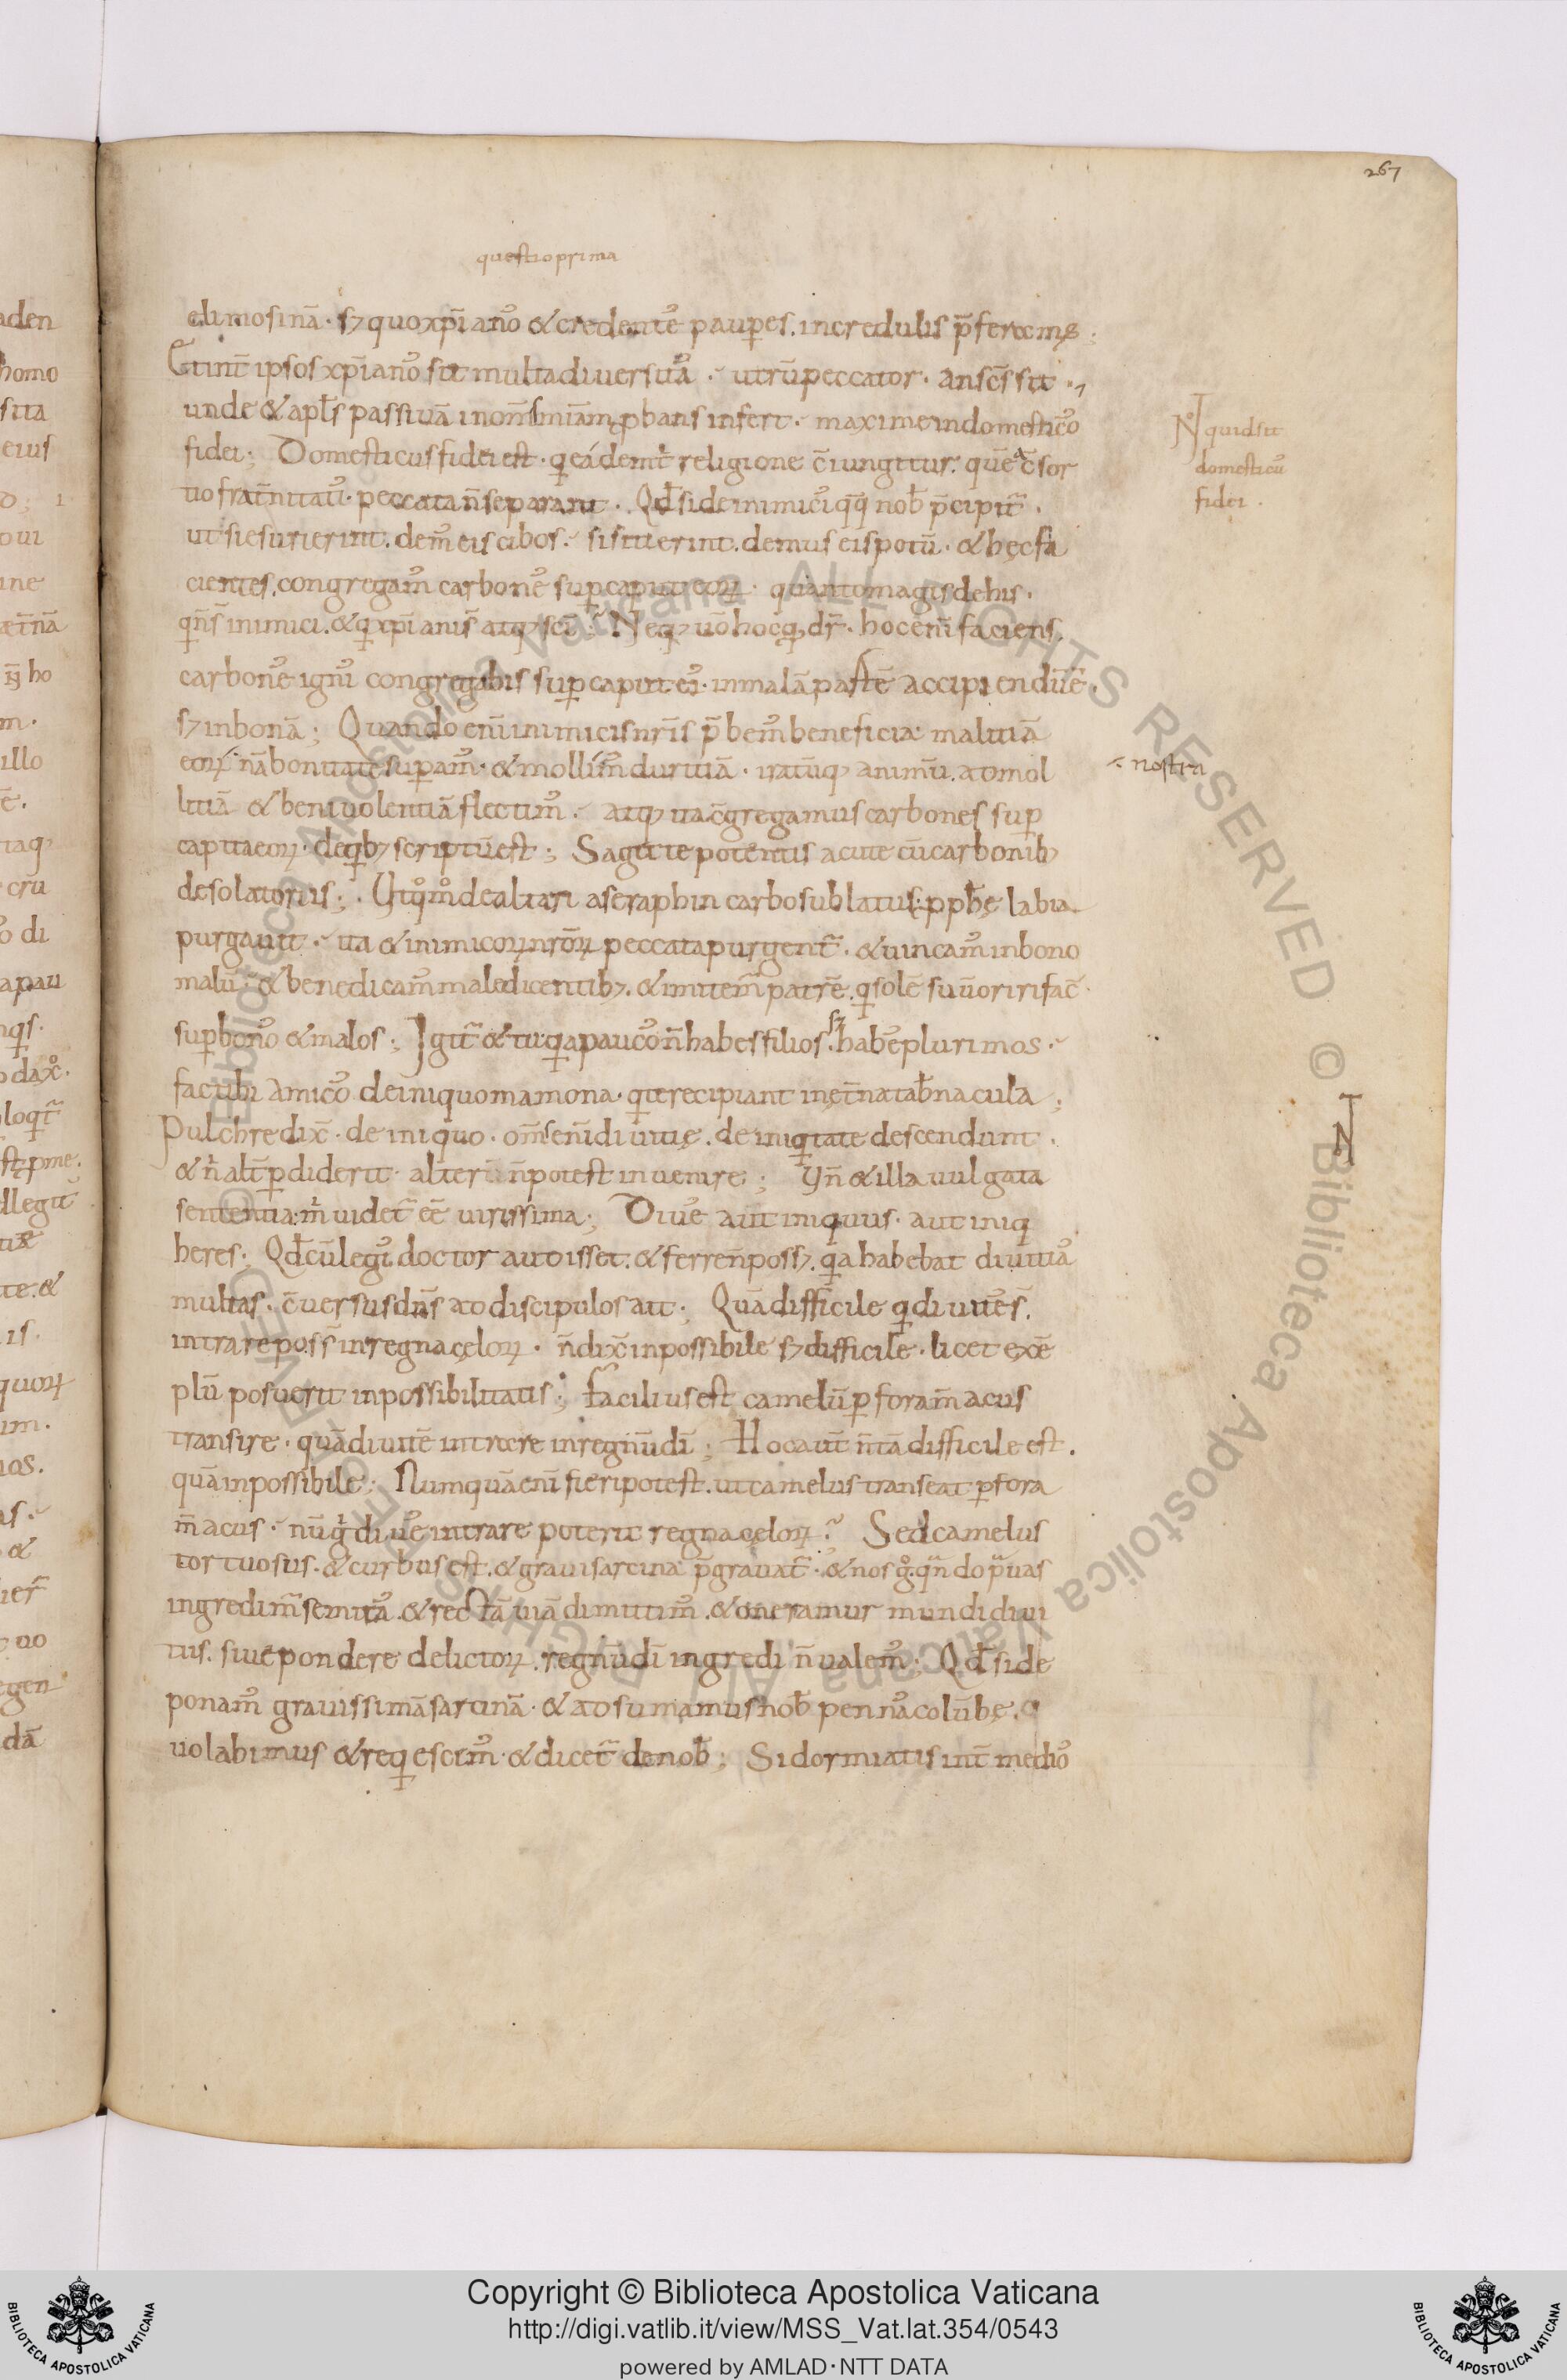 267
questio prima
elimosinā · sꝫ quo xp̄iano᷒ & credente᷒ pauꝑes . incredulis p̄feramꝰ ;
Et int̄ ipsos xp̄iano᷒ sit multa diuersita᷒ . utrū peccator · an sc̄s sit .
unde & apl̄s passiuā in om̄s mīam ꝓbans infert . maxime in domestico᷒
fidei ; Domesticus fidei est · qui eádem t̄ religione c̄iungitur . quē a c̄sor
tio frat̄nitati᷒ · peccata n̄ separant . Qd̄ si de inimici᷒ qq̄ nob̄ p̄cipit̄ .
ut si esurierint . dem᷒ eis cibos . si sitierint . demus eis potū · & hęc fa
cientes . congregam᷒ carbone᷒ suꝑ caput eoꝝ · quanto magis de his .
qi n̄ s̄ inimici . & qi xp̄ianis atqꝫ sc̄i ; Neqꝫ uō hoc qd dr̄ . hoc eni᷒ faciens .
carbone᷒ igni᷒ congregabis suꝑ caput ei᷒ · in malā partē accipiendū ē .
sꝫ in bonā ; Quando eni᷒ inimicis nr̄is p̄bem᷒ beneficia malitiā
eoꝝ nr̄a bonitate suꝑam᷒ · & mollim᷒ duritiā · iratūqꝫ animū . ad mol
litiā & beniuolentiā flectim᷒ . atqꝫ ita c̄gregamus carbones suꝑ
capita eoꝝ · de qibꝫ scriptū est ; Sagitte potentis acute cū carbonibꝫ
desolatoriis ; . Et qm̊ de altari a seraphin carbo sublatus : ꝓph̄ę labia
purgauit . ita & inimicoꝝ nr̄oꝝ peccata purgent̄ . & uincam᷒ in bono
malū · & benedicam᷒ maledicentibꝫ . & imitem̄ patrē . qi solē suū oriri fac̄
suꝑ bono᷒ & malos ; Igit̄ & tu qia pauco᷒ n̄ habes filios . sꝫ habe᷒ plurimos .
fac tibi amico᷒ de iniquo mamona · qi te recipiant in et̄na tab̄nacula ;
Pulchre dix̄ · de iniquo . om̄s eni᷒ diuitię . de iniqitate descendunt .
& n̄ alt̄ ꝑdiderit · alter n̄ potest inuenire ; Un̄ & illa uulgata
sententia : m uidet̄ eē uirissima ; Diue᷒ aut iniquus . aut iniqi
heres ; Qd̄ cū legi᷒ doctor audisset . & ferre n̄ possꝫ . qia habebat diuitia᷒
multas . c̄uersus dn̄s ad discipulos ait ; Quā difficile qi diuite᷒ s̄ .
intrare poss̄ in regna cęloꝝ · n̄ dix̄ inpossibile sꝫ difficile · licet exē
plū posuerit inpossibilitatis ; Facilius est camelū ꝑ foram̄ acus
transire · quā diuitē intrare in regnū di᷒ ; Hoc aūt n̄ tā difficile est .
quā inpossibile ; Numquā eni᷒ fieri potest . ut camelus transeat ꝑ fora
m̄ acus . nūqid diue᷒ intrare poterit regna cęloꝝ ? Sed camelus
tortuosus . & curbus est . & graui sarcina p̄grauat̄ . & nos g̊ . qn̄do prauas
ingredim̄ semita᷒ . & rectā uiā dimittim᷒ . & oneramur mundi diui
tiis . siue pondere delictoꝝ . regnū di᷒ ingredi n̄ ualem᷒ ; Qd̄ si de
ponam᷒ grauissimā sarcinā . & adsumamus nob̄ penna᷒ colūbę .
uolabimus & reqiescim᷒ . & dicet̄ de nob̄ ; Si dormiatis int̄ medio᷒
N quid sit
domesticu᷒
fidei .
nostra
Copyright © Biblioteca Apostolica Vaticana
http://digi.vatlib.it/view/MSS_Vat.lat.354/0543
powered by AMLAD·NTT DATA
BIBLIOTECA APOSTOLICA VATICANA
BIBLIOTECA APOSTOLICA VATICANA